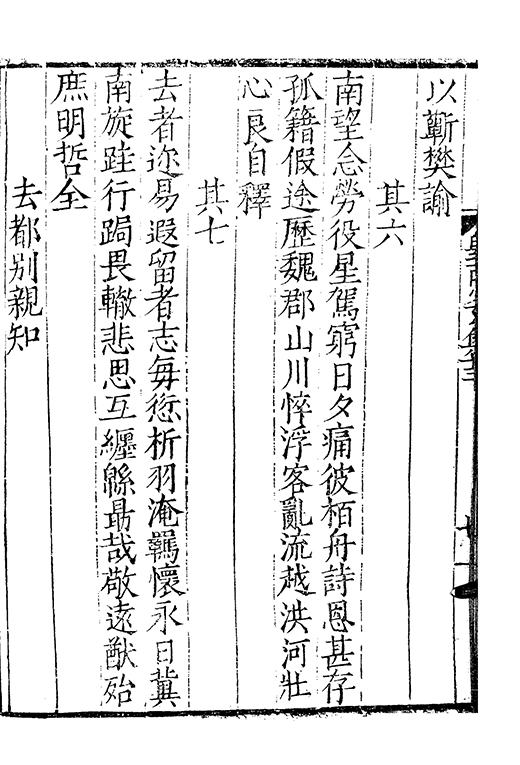 以蘄樊諭
其六
南望念勞役星駕窮日夕痛彼栢舟詩恩甚存
孤籍假途歷魏郡山川悴浮客亂流越洪河壯
心良自釋
其七
去者迩易遐留者志每愆析羽淹羈懷永日冀
南旋跬行跼畏轍悲思互纒緜勗哉敬遠猷殆
庶明哲全
去都別親知